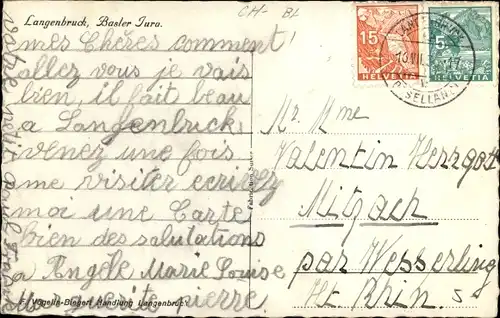 Langenbruck, Basler Jura.
CH- BL
mes Chères comment
allez vous je vais
bien, il fait beau
a Langenbruck
venez une fois
me visiter ecrivez
moi une Carte
bien des salutations
a Angèle Marie Louise
pierre
votre petit Paul
F. Vögelin-Biegert Handlung Langenbruck
15
HELVETIA
5
HELVETIA
LANGENBRUCK
Mr. Mme
Valentin Herrgott
Mitzach
par Wesserling
Ht Rhin